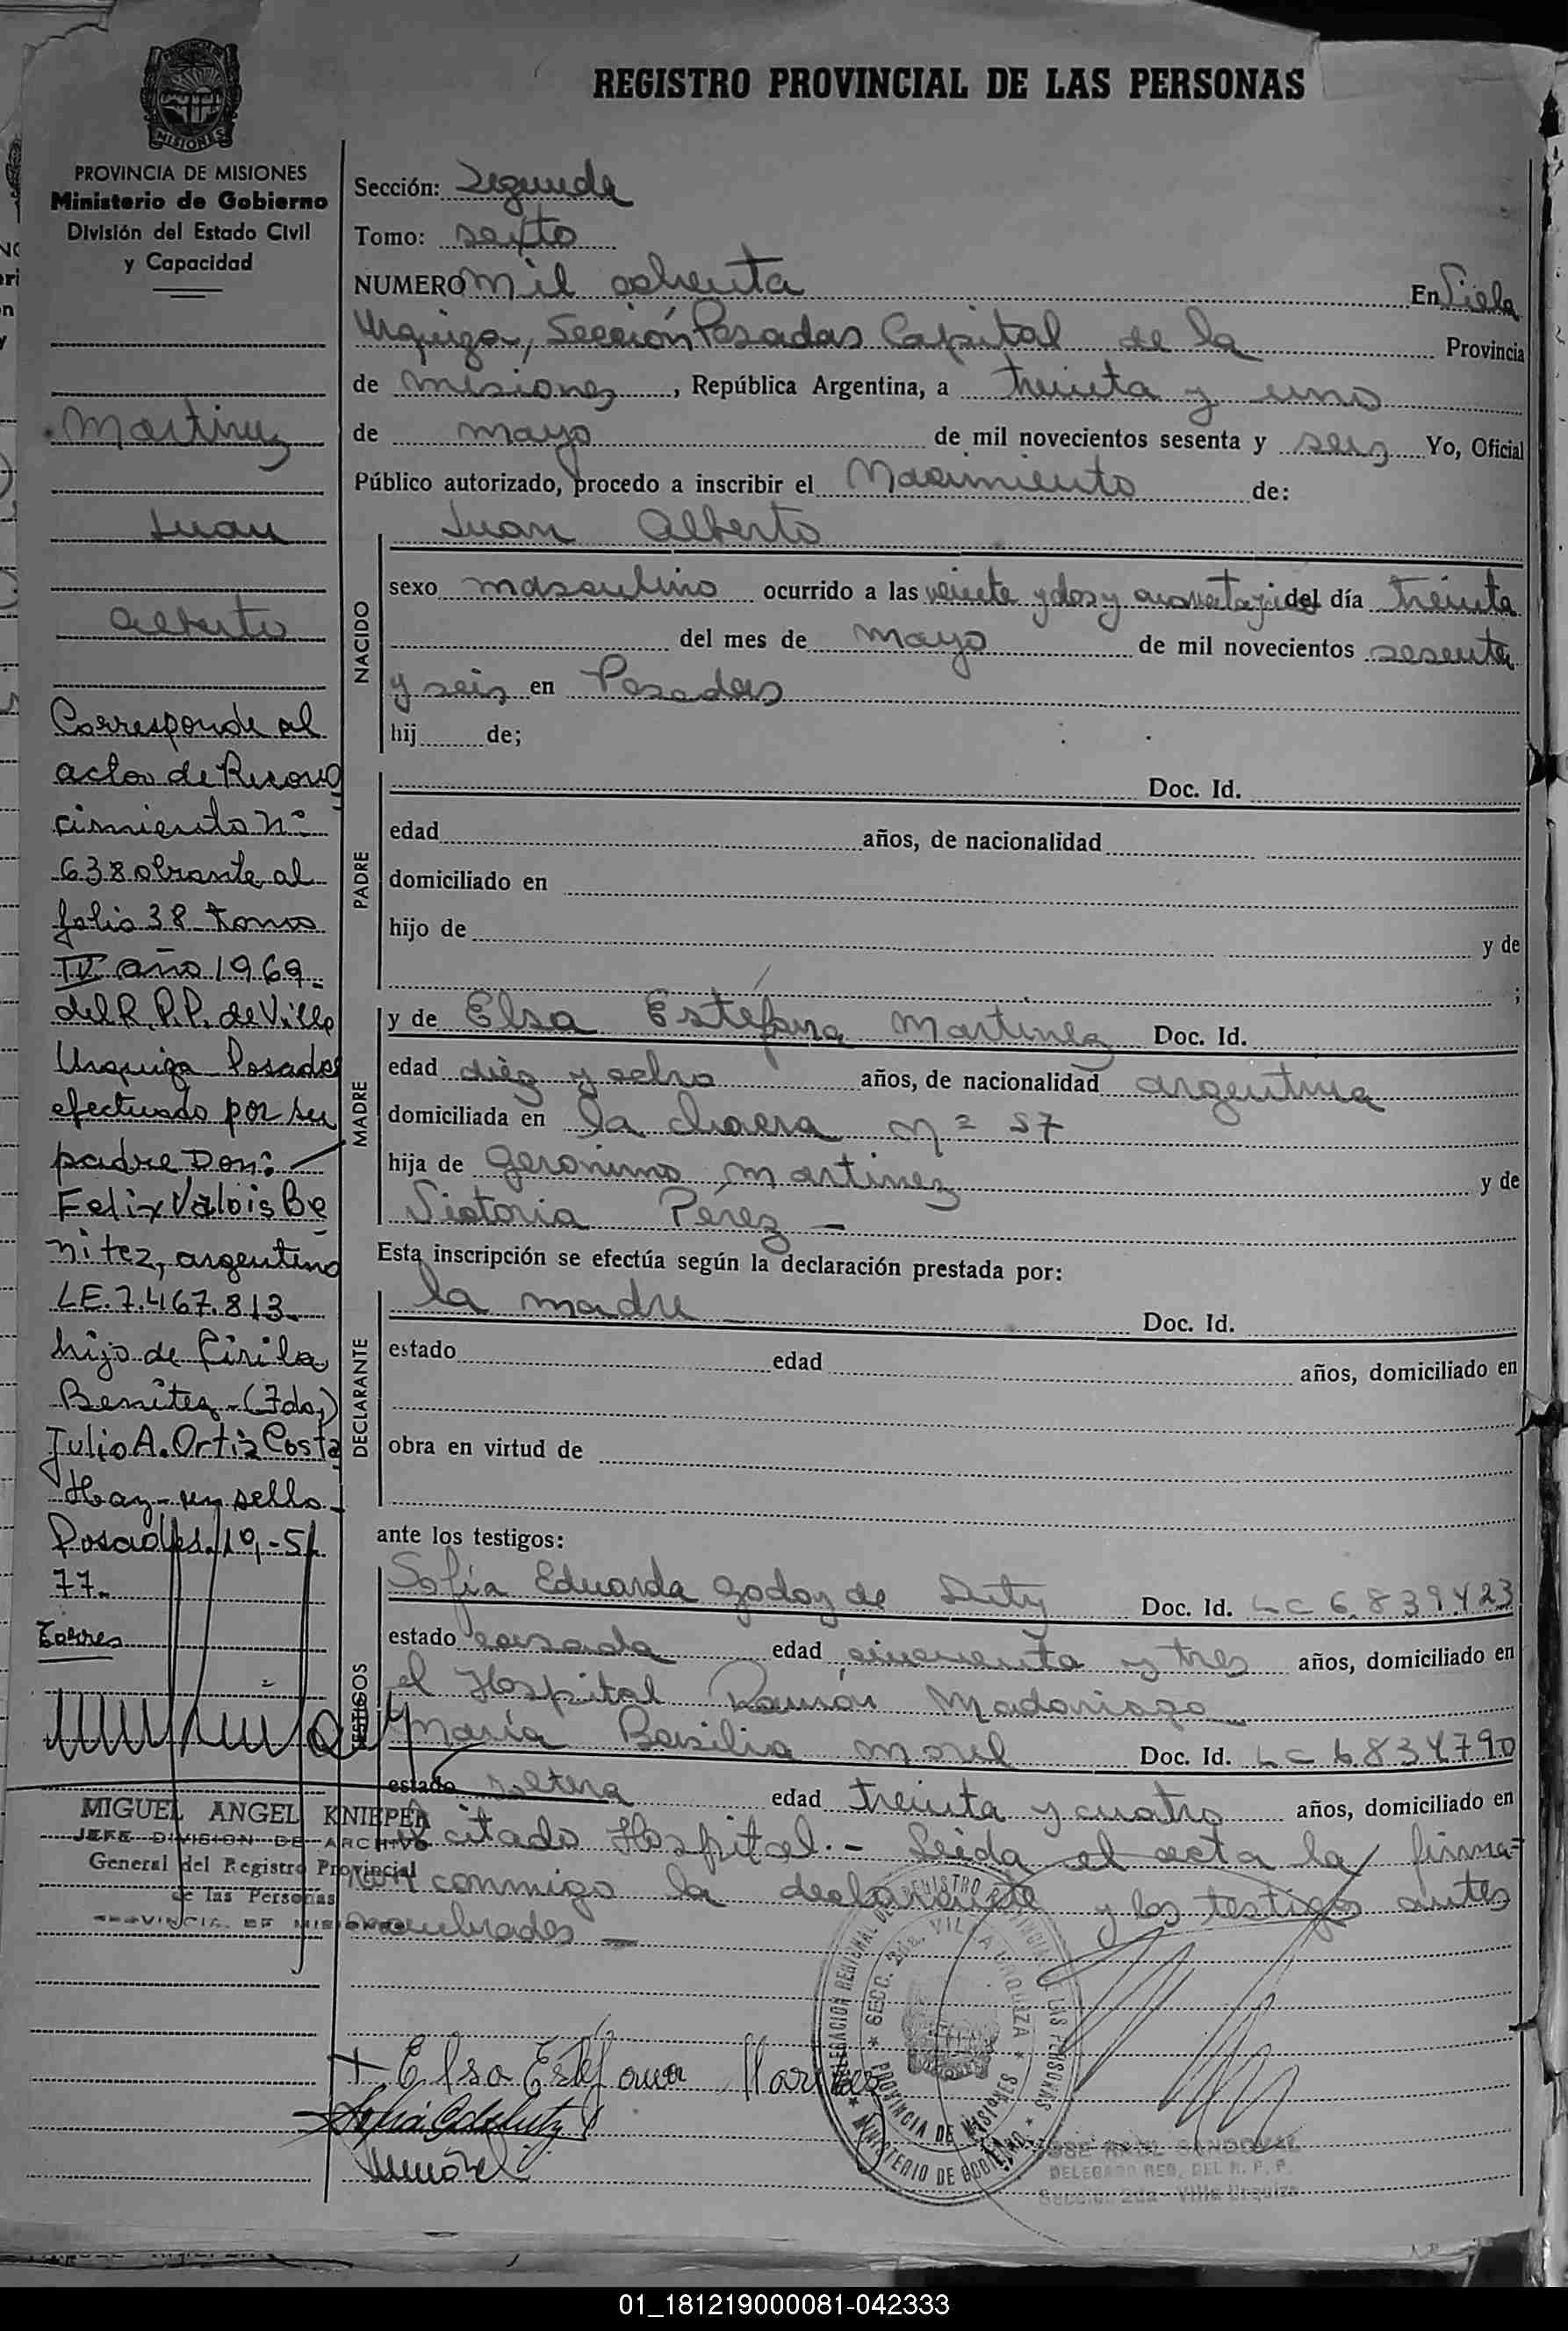 REGISTRO PROVINCIAL DE LAS PERSONAS
MISIONES
PROVINCIA DE MISIONES
Ministerio de Gobierno
División del Estado Civil
y Capacidad
Martinez
Juan
Alberto
Corresponde al
acta de Recono
cimiento nº
638 obrante al
folio 38 tomo
IV año 1969.
del R.P.P. de Villa
Urquiza Posadas
efectuado por su
padre Don:
Felix Valois Be
nitez, argentino
LE. 7.467.813.
hijo de Cirila
Benitez - (Fdo.)
Julio A. Ortiz Costa
Hay un sello
Posadas, 19-5-
77.
Torres
MIGUEL ANGEL KNIEPER
JEFE DIVISION DE ARCHIVO
General del Registro Provincial
de las Personas
PROVINCIA DE MISIONES
Sección: Segunda
Tomo: sexto
NUMERO mil ochenta En Villa
Urquiza, Sección Posadas Capital de la Provincia
de misiones, República Argentina, a treinta y uno
de mayo de mil novecientos sesenta y seis Yo, Oficial
Público autorizado, procedo a inscribir el Nacimiento de:
NACIDO
Juan Alberto
sexo masculino ocurrido a las veinte y dos y cuarenta del día treinta
del mes de mayo de mil novecientos sesenta
y seis en Posadas
hij de;
PADRE
Doc. Id.
edad años, de nacionalidad
domiciliado en
hijo de y de
;
MADRE
y de Elsa Estefana Martinez Doc. Id.
edad diez y ocho años, de nacionalidad argentina
domiciliada en la chacra nº 57
hija de Geronimo Martinez y de
Victoria Pérez -
Esta inscripción se efectúa según la declaración prestada por:
DECLARANTE
la madre Doc. Id.
estado edad años, domiciliado en
obra en virtud de
ante los testigos:
TESTIGOS
Sofía Eduarda Godoy de Doc. Id. LC 6.839.423
estado casada edad cincuenta y tres años, domiciliado en
el Hospital Ramón Madariaga
María Basilia Morel Doc. Id. LC 6.834790
estado soltera edad treinta y cuatro años, domiciliado en
citado Hospital. - Leida el acta la firma=
ron conmigo la declarante y los testigos antes
nombrados -
+ Elsa Estefana Martinez
DELEGACION REGIONAL DEL REGISTRO PROVINCIAL DE LAS PERSONAS * MINISTERIO DE GOBIERNO *
SECC. 2da. VILLA URQUIZA * PROVINCIA DE MISIONES *
JOSE RAUL SANDOVAL
DELEGADO REG. DEL R. P. P.
Sección 2da - Villa Urquiza
01_181219000081-042333